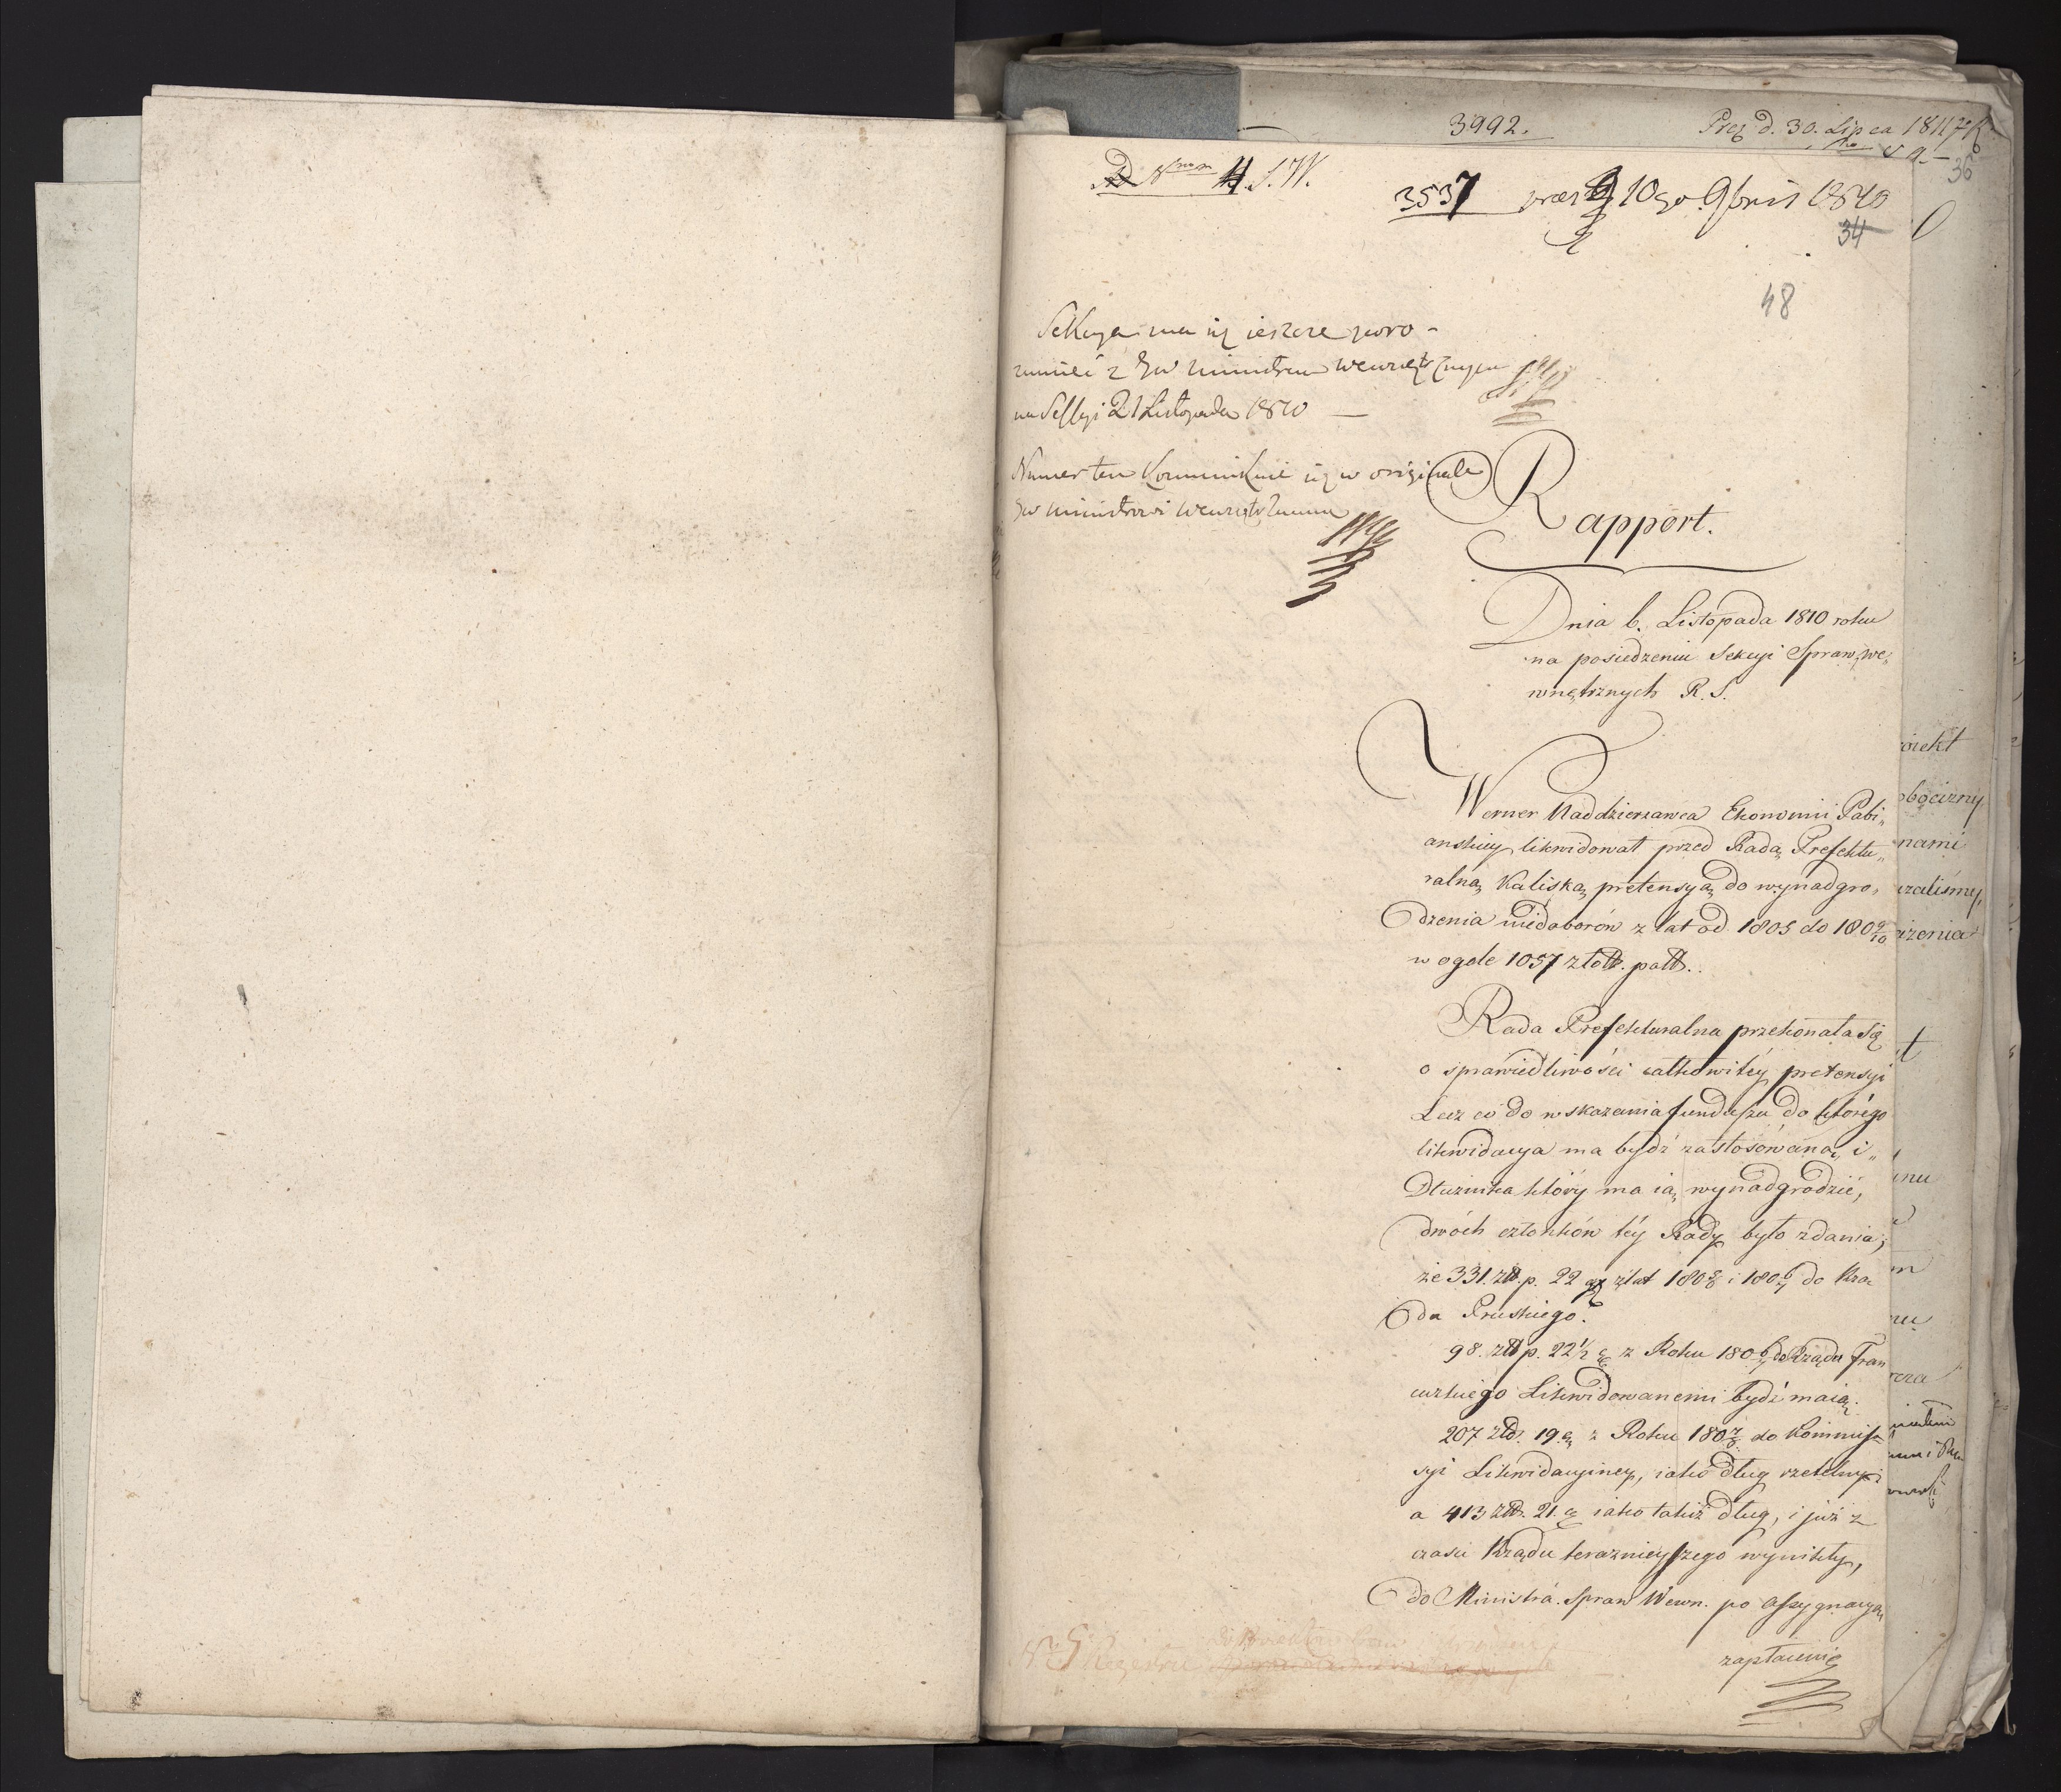 3992.
Prez d. 30. Lipca 1811
36
Nrum 4 S. W.
3537 praes 10go 9bris 1810
34
48
Sekcya ma się ieszcze poro-
zumieć z JW Ministrem Wewnętrznym
na Sessyi 21 Listopada 1810 —
Numer ten kommunikuie się w originale
JW Ministrowi Wewnętrznemu
Rapport.
Dnia 6. Listopada 1810 roku
na posiedzeniu Sekcyi Spraw we,
wnętrznych R. S.
Werner Naddzierzawca Ekonomii Pabi„
anskiey likwidował przed Radą Prefektu„
ralną Kaliską pretensyą do wynadgro„
dzenia niedoborów z lat od 1805 do 1809/10
w ogole 1057 złott. poll.
Rada Prefekturalna przekonała się
o sprawiedliwości całkowitéy pretensyi
Lecz co do wskazania funduszu do którego
likwidacya ma bydź zastosowaną i„
Dłuznika który ma ią wynadgrodzić,
dwóch członków téy Rady było zdania,
że 331. złł. p. 22 gr z lat do Rzą
du Pruskiego.
98. złł p. 22½ gr z Roku 1806/7 do Rządu Fran
cuzkiego Likwidowanemi bydź maią.
207 złł. 19. gr z Roku 1807/8 do Kommis
syi Likwidacyiney, iako dług rzetelny
a 413 złł. 21. gr iako takiż dług, i już z
czasu Rządu teraznieyszego wynikły,
do Ministra Spraw Wewn. po assygnacyą
zapłacenie
óiekt
obocizny,
nami
zaliśmy,
żenia
t
nu
m
nu
cza
N. 5